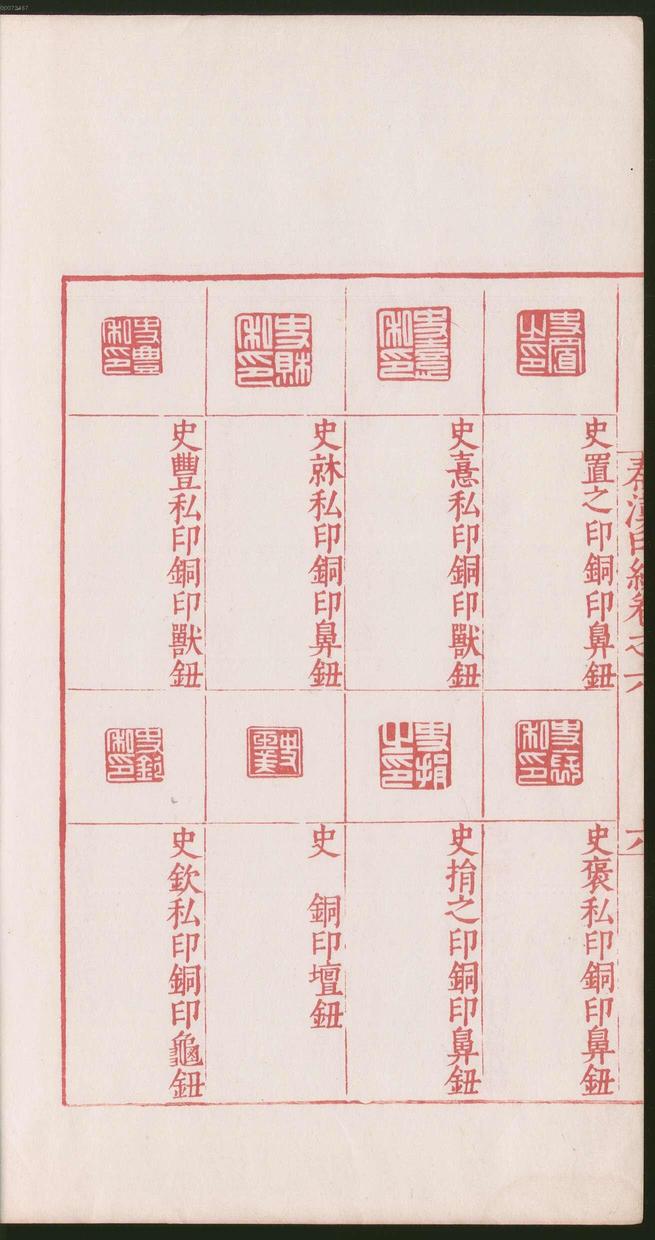 史置之印銅印鼻鈕
史憙私印銅印獸鈕
史㷂私印銅印鼻鈕
史豐私印銅印獸鈕
史褒私印銅印鼻鈕
史捐之印銅印鼻鈕
史 銅印壇鈕
史欽私印銅印龜鈕